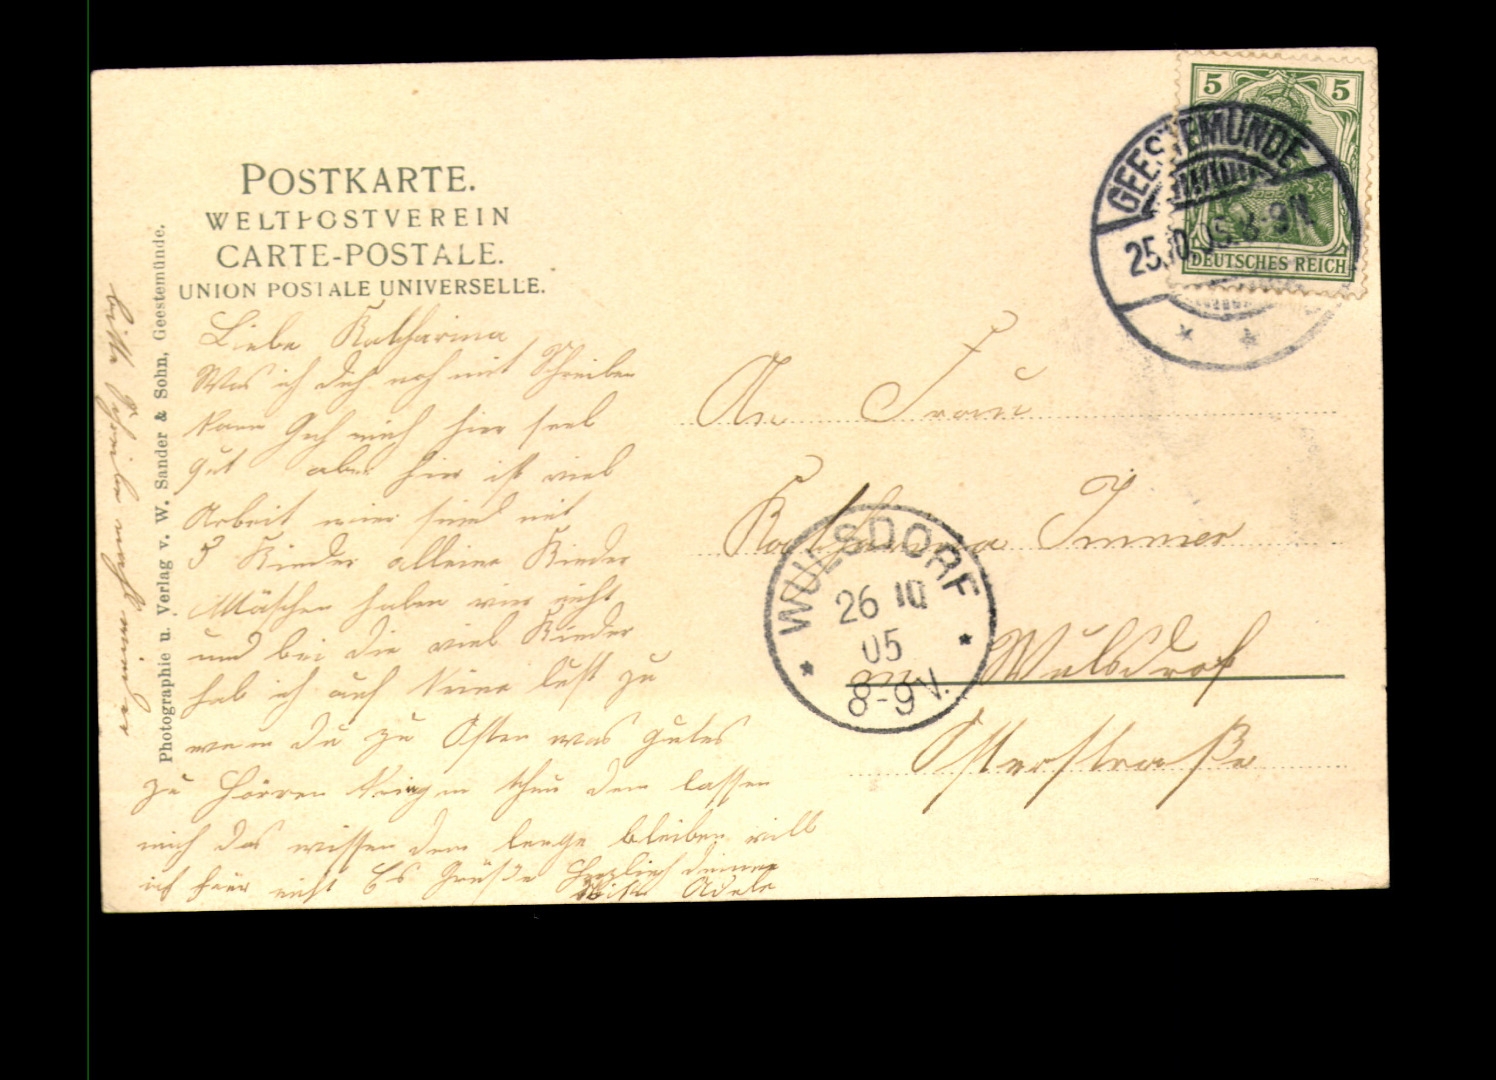 POSTKARTE.
WELTPOSTVEREIN
CARTE-POSTALE.
UNION POSTALE UNIVERSELLE.
Photographie u. Verlag v. W. Sander & Sohn, Geestemünde.
5 5
DEUTSCHES REICH
GEESTEMÜNDE
25.10.05. 8-9N.
WULSDORF
26 10
05
8-9V.
An Frau
Katharina Immer
in Wulsdorf
Osterstraße
Liebe Katharina
Was ich dich noch mit Schreiben
kann Geh mich hier
gut aber hier ist viel
Arbeit wier sind mit
5 Kinder alleine Kinder
Mäschen haben wir nicht
und bei die viel Kinder
hab ich auch keine lust zu
wenn du zu Ostern was gutes
zu hörren dem lassen
mich das wissen dem lenge bleiben will
ich hier nicht Es Grüße Herzlich deine
Adele
bitte Schreibe mich wieder